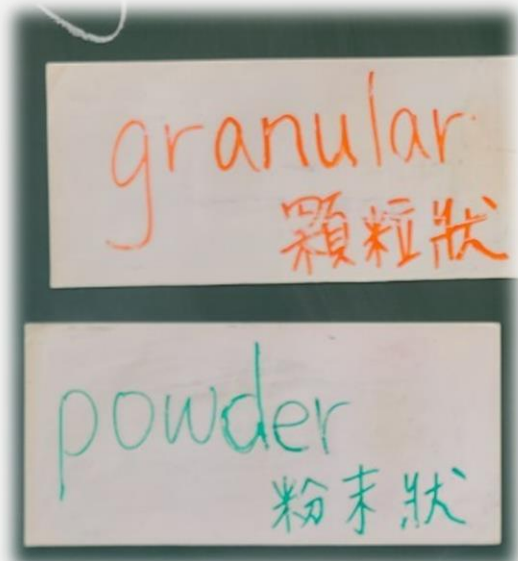 granular
顆粒狀
powder
粉末狀